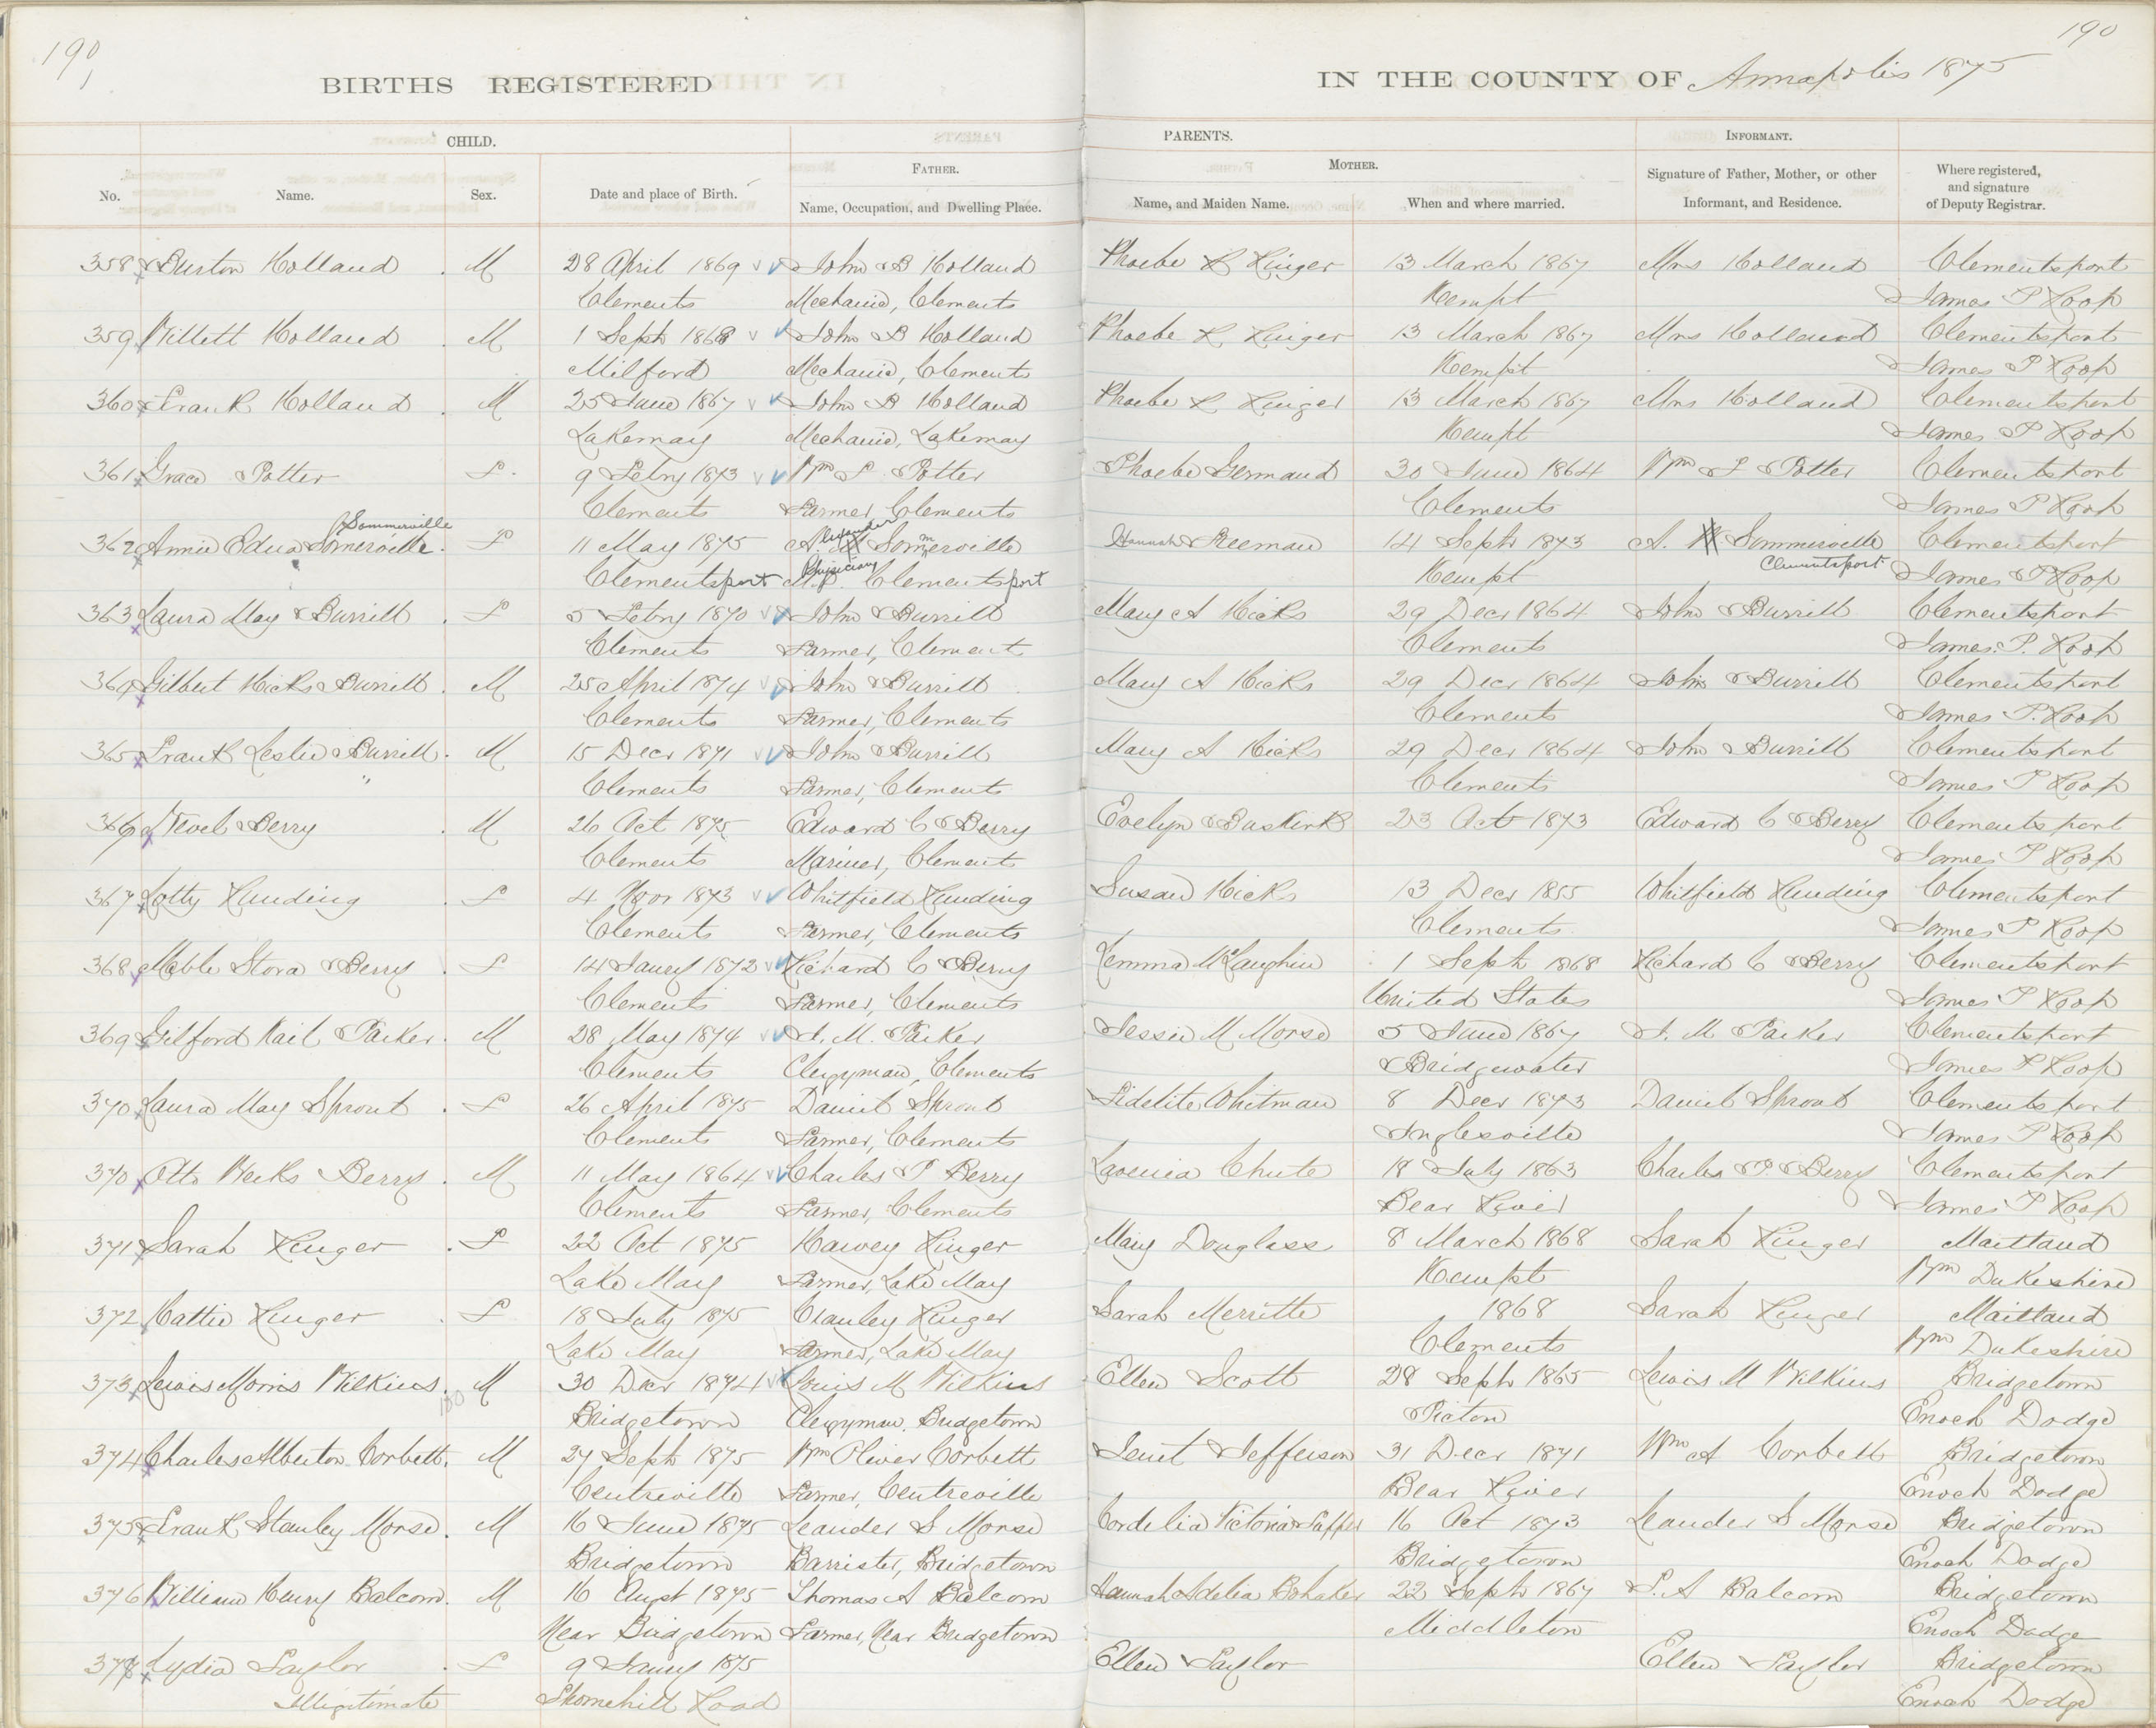 190
190
BIRTHS REGISTERED
IN THE COUNTY OF Annapolis 1875
CHILD.
PARENTS.
INFORMANT.
FATHER.
MOTHER.
No.
Name.
Sex.
Date and place of Birth.
Name, Occupation, and Dwelling Place.
Name, and Maiden Name.
When and where married.
Signature of Father, Mother, or other Informant, and Residence.
Where registered, and signature of Deputy Registrar.
358 Burton Holland M 28 April 1869 John B Holland Phoebe R Ringer 13 March 1867 Mrs Holland Clementsport
Clements Mechanic, Clements Kempt James P Roop
359 Willett Holland M 1 Sept 1868 John B Holland Phoebe R Ringer 13 March 1867 Mrs Holland Clementsport
Milford Mechanic, Clements Kempt James P Roop
360 Frank Holland M 25 June 1867 John B Holland Phoebe R Ringer 13 March 1867 Mrs Holland Clementsport
Lakemay Mechanic, Lakemay Kempt James P Roop
361 Grace Potter F. 9 Febry 1873 Wm F. Potter Phoebe Germand 30 June 1864 Wm F Potter Clementsport
Clements Farmer, Clements Clements James P Roop
Sommerville
362 Annie Edna Somerville F 11 May 1875 Alexander Sommerville Hannah Freeman 14 Sept 1873 A. Sommerville Clementsport
Clementsport Physician Clementsport Kempt Clementsport James P Roop
363 Laura May Burrill F 5 Febry 1870 John Burrill Mary A Hicks 29 Decr 1864 John Burrill Clementsport
Clements Farmer, Clements Clements James. P. Roop
364 Gilbert Hicks Burrill M 25 April 1874 John Burrill Mary A Hicks 29 Decr 1864 John Burrill Clementsport
Clements Farmer, Clements Clements James P. Roop
365 Frank Leslie Burrill M 15 Decr 1871 John Burrill Mary A Hicks 29 Decr 1864 John Burrill Clementsport
" Clements Farmer, Clements Clements James P Roop
366 Berry M 26 Oct 1875 Edward C Berry Evelyn Buskirk 23 Oct 1873 Edward C Berry Clementsport
Clements Mariner, Clements James P Roop
367 Lotty Runding F 4 Novr 1873 Whitfield Runding Susan Hicks 13 Decr 1855 Whitfield Runding Clementsport
Clements Farmer, Clements Clements James P Roop
368 Mable Stora Berry F 14 Janey 1872 Richard C Berry Remma McLaughin 1 Sept 1868 Richard C Berry Clementsport
Clements Farmer, Clements United States James P Roop
369 Gilford Parker M 28 May 1874 M. Parker Jessie M Morse 5 June 1867 M Parker Clementsport
Clements Clergyman, Clements Bridgewater James P Roop
370 Laura May Sprout F 26 April 1875 Daniel Sprout Fidelite Whitman 8 Decr 1873 Daniel Sprout Clementsport
Clements Farmer, Clements Inglesville James P Roop
370 Otto Weeks Berry M 11 May 1864 Charles P Berry Lavenia Chute 18 July 1863 Charles P Berry Clementsport
Clements Farmer, Clements Bear River James P Roop
371 Sarah Ringer F 22 Oct 1875 Harvey Ringer Mary Douglass 8 March 1868 Sarah Ringer Maitland
Lake May Farmer, Lake May Kempt Wm Dukeshire
372 Hattie Ringer F 18 July 1875 Ringer Sarah Merritte 1868 Sarah Ringer Maitland
Lake May Farmer, Lake May Clements Wm Dukeshire
373 Lewis Morris Wilkins M 30 Decr 1874 Louis M Wilkins Ellen Scott 28 Sept 1865 Lewis M Wilkins Bridgetown
Bridgetown Clergyman, Bridgetown Picton Enoch Dodge
374 Charles Alberton Corbett M 27 Sept 1875 Wm Oliver Corbett Jefferson 31 Decr 1871 Wm A Corbett Bridgetown
Centreville Farmer, Centreville Bear River Enoch Dodge
375 Frank Stanley Morse M 16 June 1875 Leander S Morse Cordelia Victoria 16 Oct 1873 Leander S Morse Bridgetown
Bridgetown Barrister, Bridgetown Bridgetown Enoch Dodge
376 William Henry Balcom M 16 Augst 1875 Thomas A Balcom Hannah Adelia Bohaker 22 Sept 1867 A Balcom Bridgetown
Near Bridgetown Farmer, Near Bridgetown Middleton Enoch Dodge
377 Lydia Saylor F 9 Janry 1875 Ellen Saylor Ellen Saylor Bridgetown
Illigitimate Road Enoch Dodge